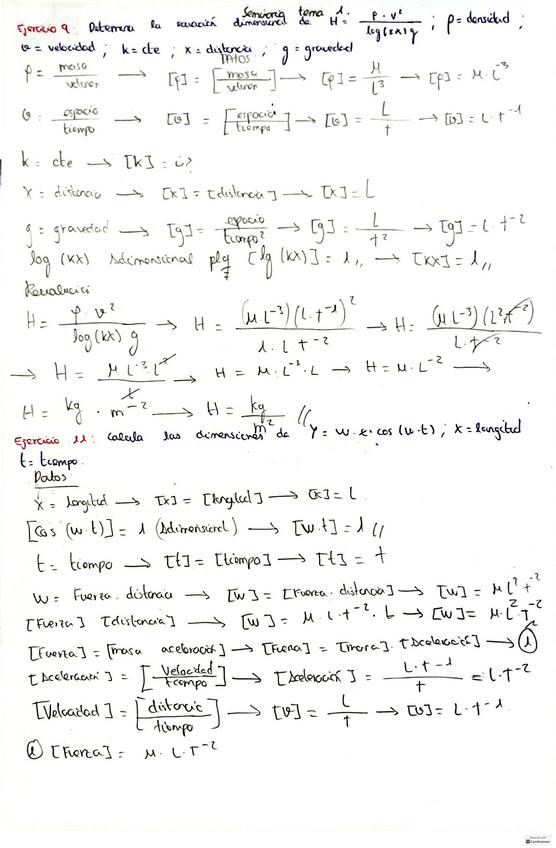 Seminario tema 1.
Ejercicio 9: Determina la ecuación dimensional de H = ρ·v² / log(kx) g ; ρ = densidad ;
v = velocidad ; k = cte ; x = distancia ; g = gravedad
DATOS
ρ = masa/volumen → [ρ] = [masa/volumen] → [ρ] = M/L³ → [ρ] = M·L⁻³
v = espacio/tiempo → [v] = [espacio/tiempo] → [v] = L/t → [v] = L·t⁻¹
k = cte → [k] = ¿?
X = distancia → [x] = [distancia] → [x] = L
g = gravedad → [g] = espacio/tiempo² → [g] = L/t² → [g] = L·t⁻²
log (kx) Adimensional [lg (kx)] = 1,, → [kx] = 1,,
H = ρ·v² / log(kx) g → H = (M·L⁻³)(L·t⁻¹)² / 1·L·t⁻² → H = (M·L⁻³)(L²t⁻²) / L·t⁻²
→ H = M·L⁻³·L² / L → H = M·L⁻³·L → H = M·L⁻² →
H = kg · m⁻² → H = kg/m² //
Ejercicio 11: calcula las dimensiones de Y = w·x·cos(w·t) ; x = longitud
t = tiempo.
Datos:
X = longitud → [x] = [longitud] → [x] = L
[cos (w·t)] = 1 (Adimensional) → [w·t] = 1 //
t = tiempo → [t] = [tiempo] → [t] = t
w = Fuerza · distancia → [w] = [Fuerza · distancia] → [w] = M L² t⁻²
[Fuerza] [distancia] → [w] = M·L·t⁻²·L → [w] = M·L²T⁻²
[Fuerza] = [masa aceleración] → [Fuerza] = [masa]·[Aceleración] → ①
[Aceleración] = [velocidad/tiempo] → [Aceleración] = L·t⁻¹/t = L·t⁻²
[Velocidad] = [distancia/tiempo] → [v] = L/t → [v] = L·t⁻¹
① [Fuerza] = M·L·T⁻²
CamScanner